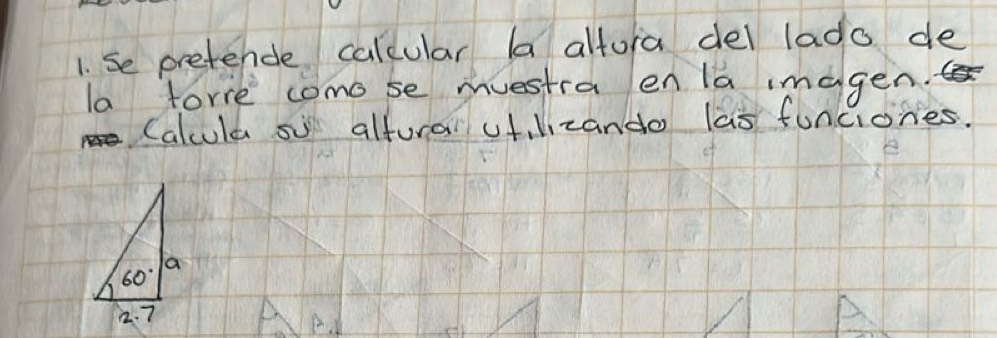 1. Se pretende calcular la altura del lado de
la torre como se muestra en la imagen.
Calcula su altura utilizando las funciones.
60°
a
2.7